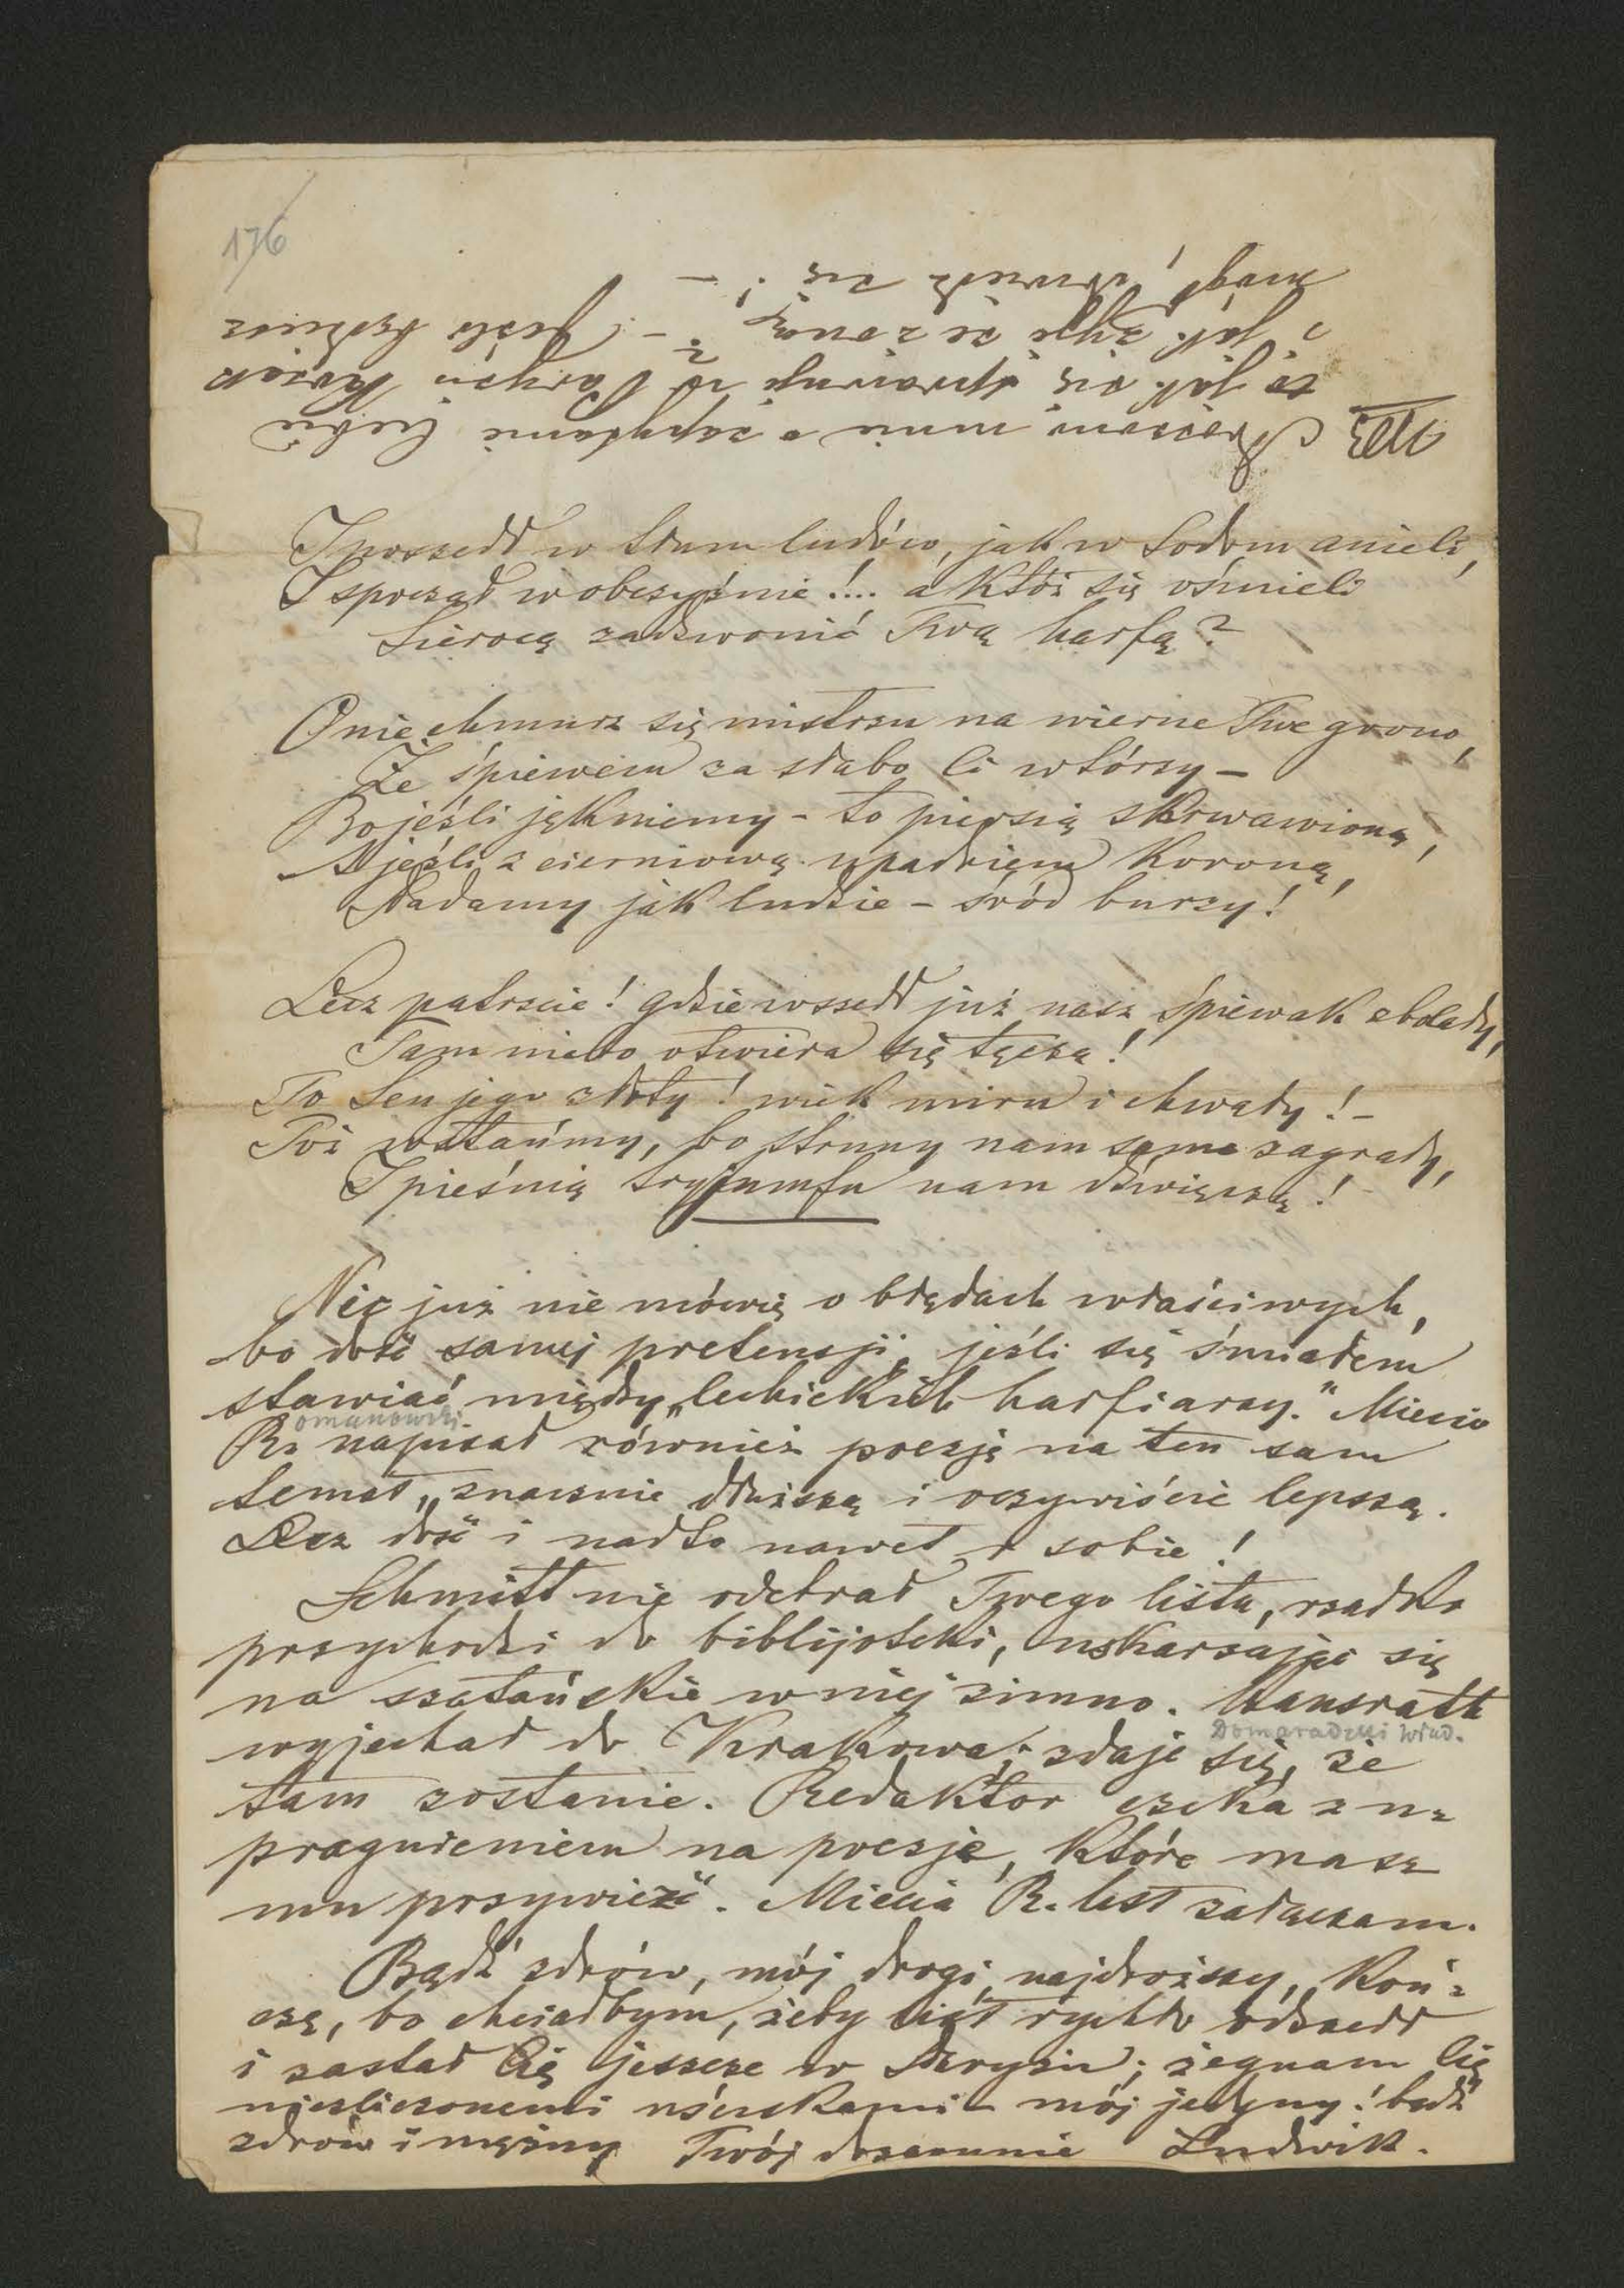 176
NB. Proszono mnie o zapytanie Ciebie
jak się sprawuje w Paryżu Kossak
i jak żyje ze żoną? – Jeśli będziesz
mógł, dowiedz się! –
I poszedł w tłum ludów, jak w Sodom anieli,
I spoczął w obczyźnie!... a któż się ośmieli
Sierocą zadzwonić Twą harfą?
O nie chmurz się mistrzu na wierne Twe grono,
Że śpiewem za słabo Ci wtórzy –
Bo jeśli jękniemy – to piersią skrwawioną,
A jeśli z cierniową upadniem koroną,
Padamy jak ludzie – śród burzy!
Lecz patrzcie! gdzie wszedł już nasz śpiewak zbolały,
Tam niebo otwiera się tęczą!
To Sen jego złoty! wiek miru i chwały! –
Toż wstańmy, bo struny nam same zagrały,
I pieśnią tryjumfu nam dźwięczą!
Nic już nie mówię o błędach właściwych,
bo dość samej pretensji, jeśli się śmiałem
stawiać między „lechickich harfiarzy." Miecio
omanowski.
R. napisał również poezję na ten sam
temat, znacznie dłuższą i oczywiście lepszą.
Lecz dość i nadto nawet o sobie!
Schmitt nie odebrał Twego listu, rzadko
przychodzi do biblijoteki, uskarżając się
na szatańskie w niej zimno. Hausratt
Domaradzki Wład.
wyjechał do Krakowa; zdaje się, że
tam zostanie. Redaktor czeka z u-
pragnieniem na poezje, które masz
mu przywieźć. Miecia R. list załączam.
Bądź zdrów, mój drogi, najdroższy, Koń-
czę, bo chciałbym, żeby list rychło odszedł
i zastał Cię jeszcze w Paryżu; żegnam Cię
niezliczonemi uściskami mój jedyny! bądź
zdrów i mężny Twój dozgonnie Ludwik.